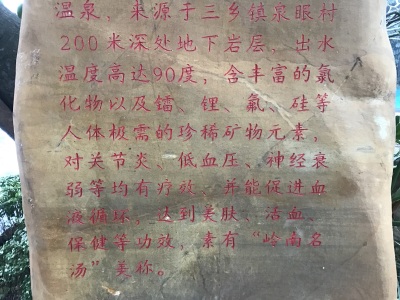 温泉，来源于三乡镇泉眼村
200米深处地下岩层，出水
温度高达90度，含丰富的氯
化物以及镭、锂、氟、硅等
人体极需的珍稀矿物元素，
对关节炎、低血压、神经衰
弱等均有疗效，并能促进血
液循环，达到美肤、洁血、
保健等功效，素有“岭南名
汤”美称。